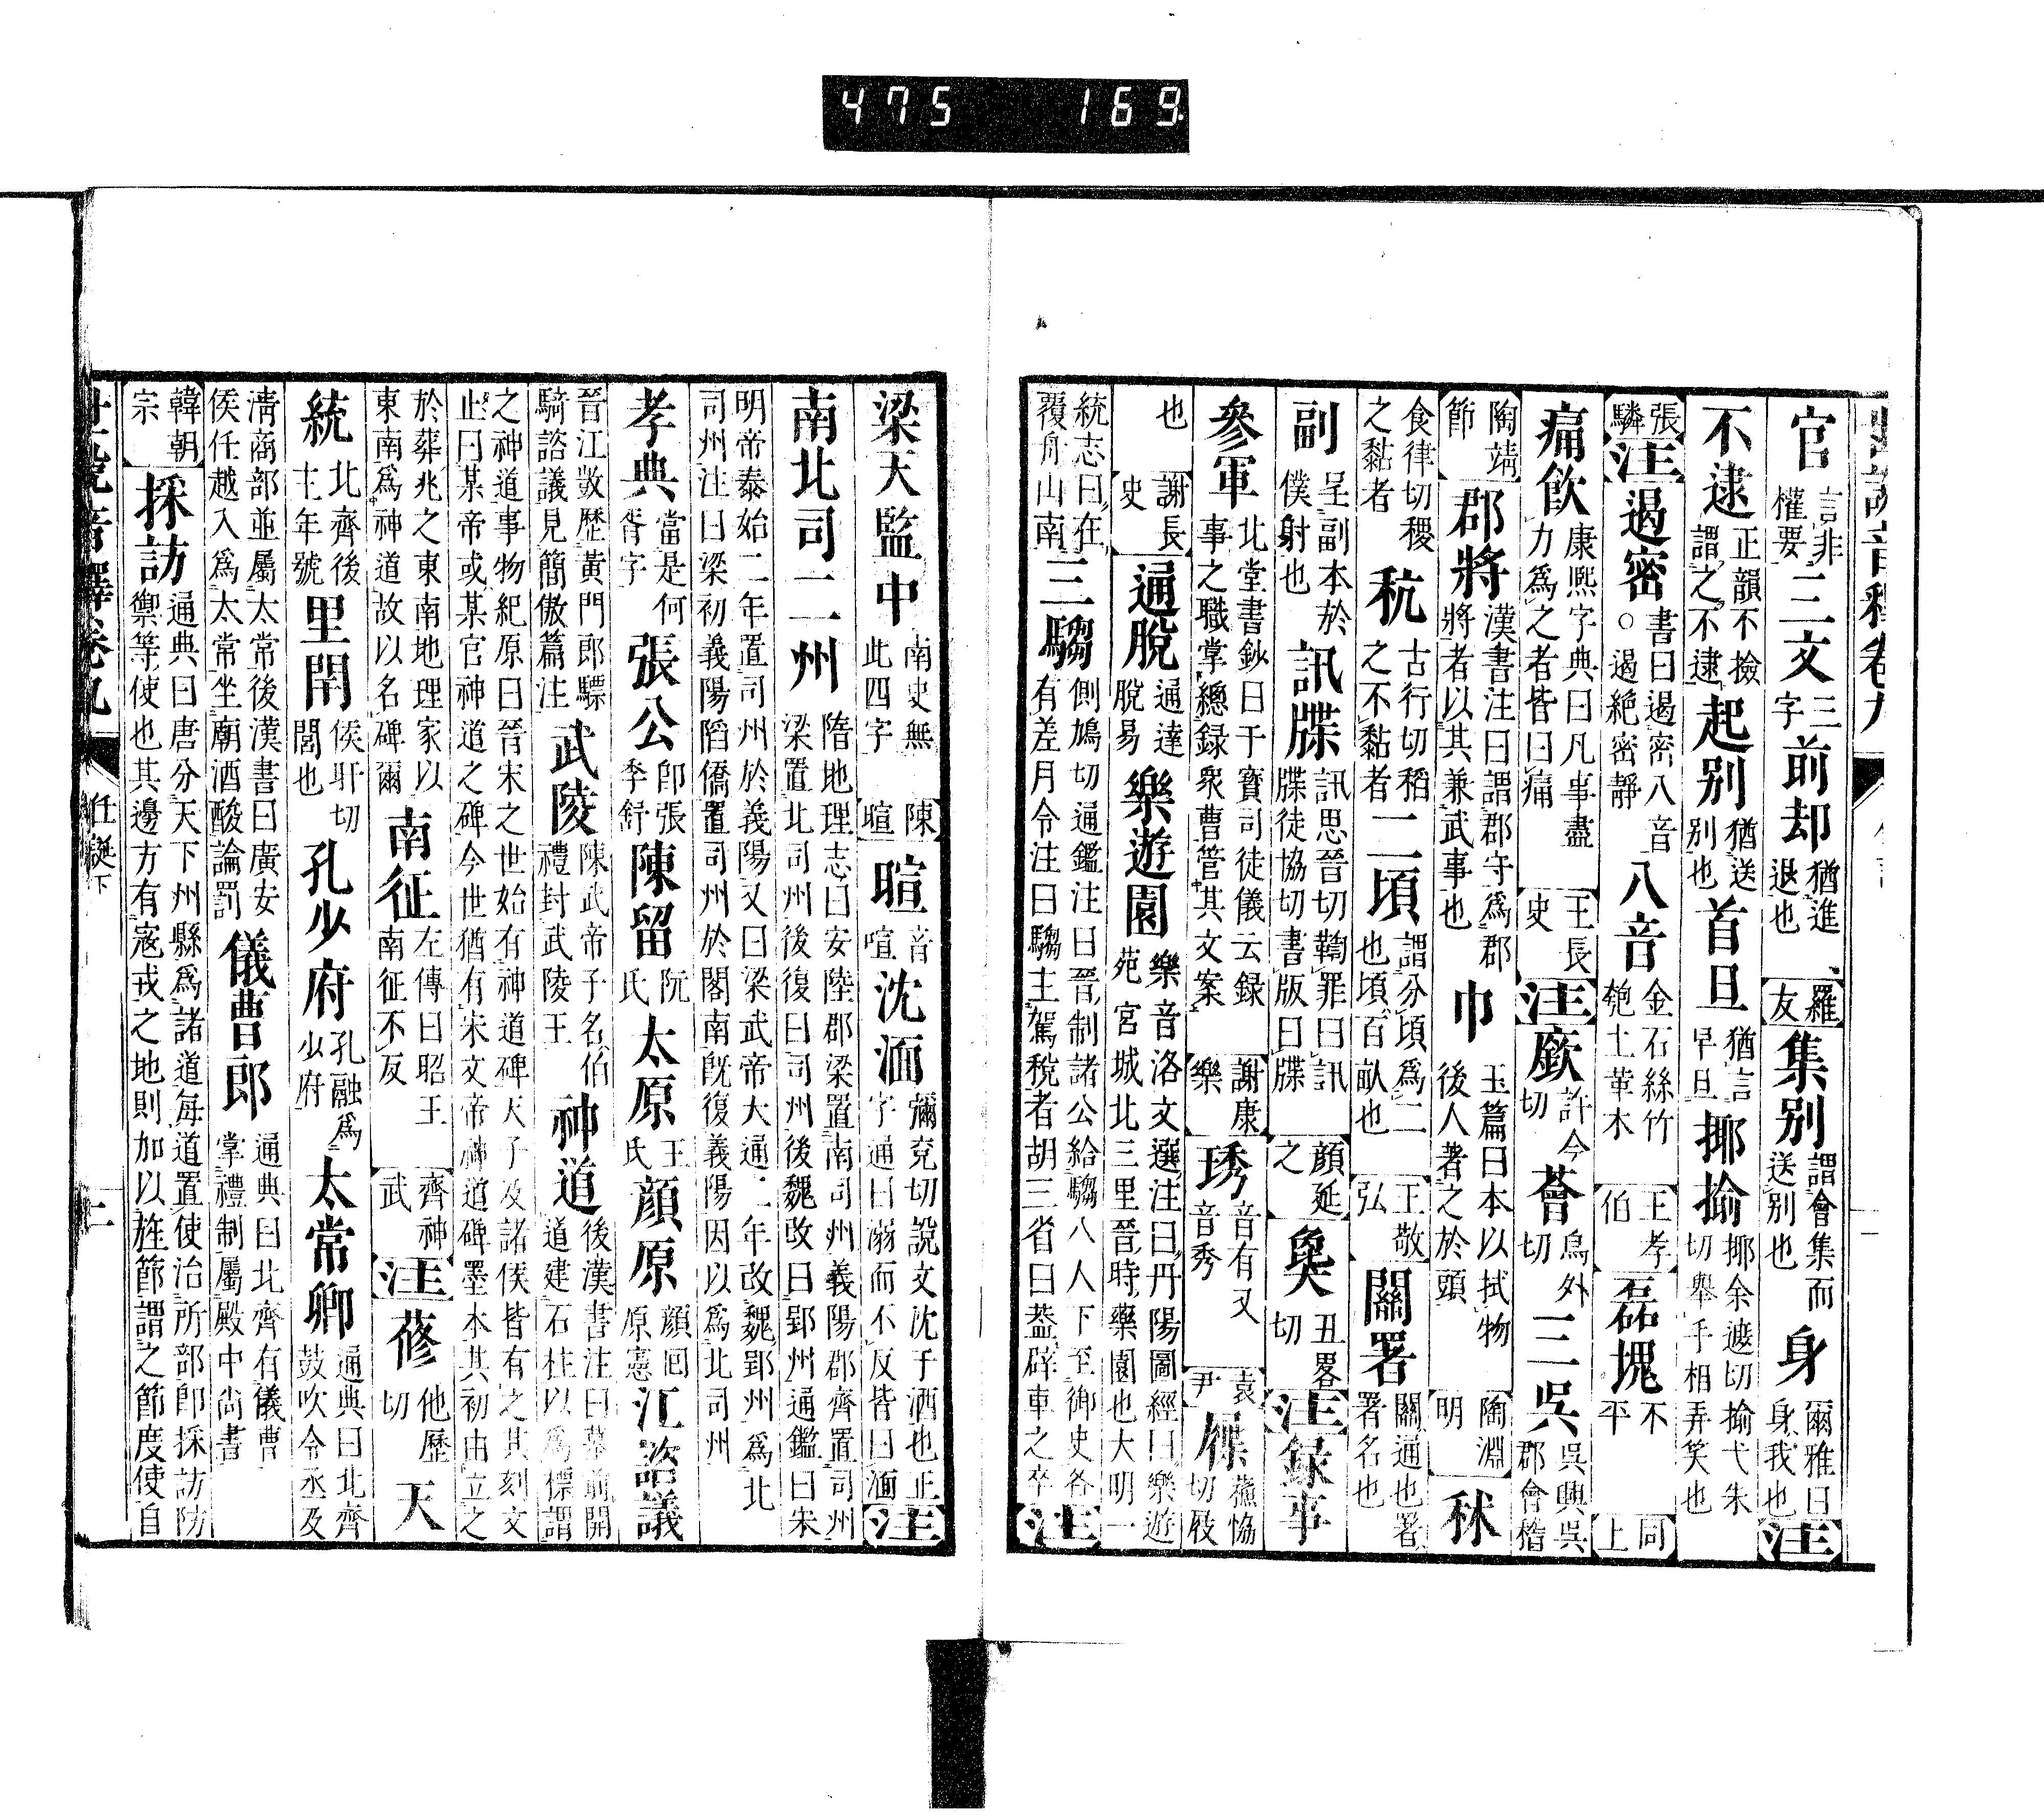 475 169
官言非權要三文三字前却猶進退也羅友集別謂會集而送別也身爾雅曰身我也注
不逮正韻不撿謂之不逮起別猶送別也首旦猶言早旦揶揄揶余遮切揄弋朱切舉手相弄笑也
張驎注遏密書曰遏密八音○遏絶密靜八音金石絲竹匏土革木王孝伯磊塊不平同上
痛飲康熙字典曰凡事盡力爲之者皆曰痛王長史注廞許今切薈烏外切三吳吳興吳郡會稽
陶靖節郡將漢書注曰謂郡守爲郡將者以其兼武事也巾玉篇曰本以拭物後人著之於頭陶淵明秫
食律切稷之黏者秔古行切稻之不黏者二頃謂分頃爲二也頃百畝也王敬弘關署關通也署署名也
副呈副本於僕射也訊牒訊思晉切鞫罪曰訊牒徒協切書版曰牒顔延之㚟丑畧切注録事
參軍北堂書鈔曰干寶司徒儀云録事之職掌總録衆曹管其文案謝康樂琇音有又音秀袁尹屧蘓恊切屐
也謝長史通脫通達脫易樂遊園樂音洛文選注曰丹陽圖經曰樂遊苑宮城北三里晉時藥園也大明一
統志曰在覆舟山南三騶側鳩切通鑑注曰晉制諸公給騶八人下至御史各有差月令注曰騶主駕稅者胡三省曰葢辟車之卒注
梁天監中南史無此四字陳暄暄音喧沈湎彌兖切說文沈于酒也正字通曰溺而不反皆曰湎注
南北司二州隋地理志曰安陸郡梁置南司州義陽郡齊置司州梁置北司州後復曰司州後魏改曰郢州通鑑曰宋
明帝泰始二年置司州於義陽又曰梁武帝大通二年改魏郢州爲北司州注曰梁初義陽䧟僑置司州於關南旣復義陽因以爲北司州
孝典當是何胥字張公卽張季舒陳留阮氏太原王氏顔原顔囘原憲江諮議
晉江斅歷黃門郎驃騎諮議見簡傲篇注武陵陳武帝子名伯禮封武陵王神道後漢書注曰墓前開道建石柱以爲標謂
之神道事物紀原曰晉宋之世始有神道碑天子及諸侯皆有之其刻文止曰某帝或某官神道之碑今世猶有宋文帝神道碑墨本其初由立之
於葬兆之東南地理家以東南爲神道故以名碑爾南征左傳曰昭王南征不反齊神武注蓚他歷切天
統北齊後主年號里閈侯旰切閭也孔少府孔融爲少府太常卿通典曰北齊鼓吹令丞及
淸商部並屬太常後漢書曰廣安侯任越入爲太常坐廟酒酸論罰儀曹郎通典曰北齊有儀曹掌禮制屬殿中尙書
韓朝宗採訪通典曰唐分天下州縣爲諸道每道置使治所部卽採訪防禦等使也其邊方有寇戎之地則加以旌節謂之節度使自
世說音釋卷九 任誕下 二